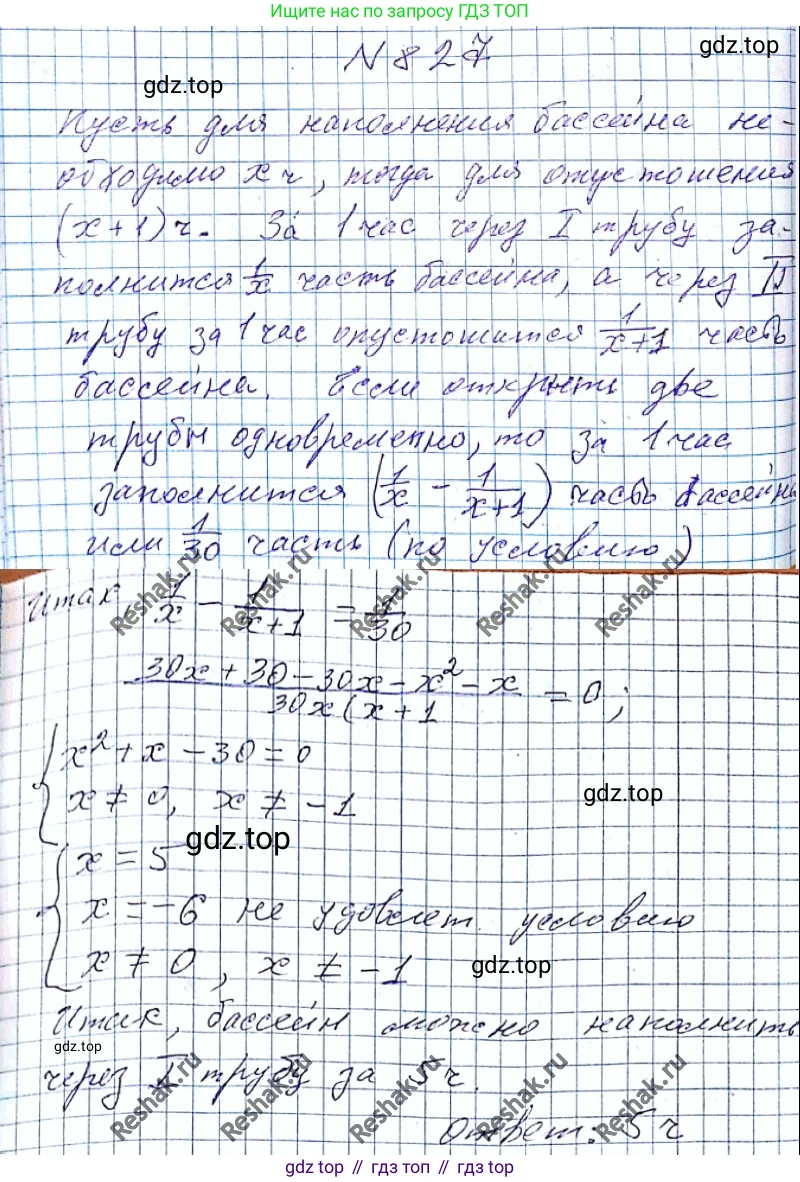 Ищите нас по запросу ГДЗ ТОП
N 827
gdz.top
gdz.top
Пусть для наполнения бассейна не-
обходимо x ч, тогда для опустошения
(x+1) ч. За 1 час через I трубу за-
полнится 1/x часть бассейна, а через II
трубу за 1 час опустошится 1/(x+1) часть
бассейна. Если открыть две
трубы одновременно, то за 1 час
заполнится (1/x - 1/(x+1)) часть бассейна
или 1/30 часть (по условию)
Итак 1/x - 1/(x+1) = 1/30
Reshak.ru Reshak.ru Reshak.ru Reshak.ru Reshak.ru
(30x + 30 - 30x - x² - x)/(30x (x + 1) = 0;
{ x² + x - 30 = 0
x ≠ 0, x ≠ -1
gdz.top
gdz.top
{ x = 5
x = -6 не удовлет. условию
x ≠ 0, x ≠ -1
gdz.top
Итак, бассейн можно наполнить
gdz.top
через I трубу за 5 ч.
Reshak.ru Reshak.ru Reshak.ru Reshak.ru Reshak.ru
Ответ: 5 ч
gdz top // гдз топ // gdz top